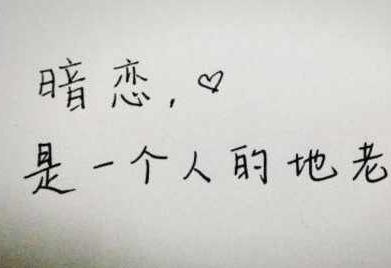 暗恋,♡
是一个人的地老